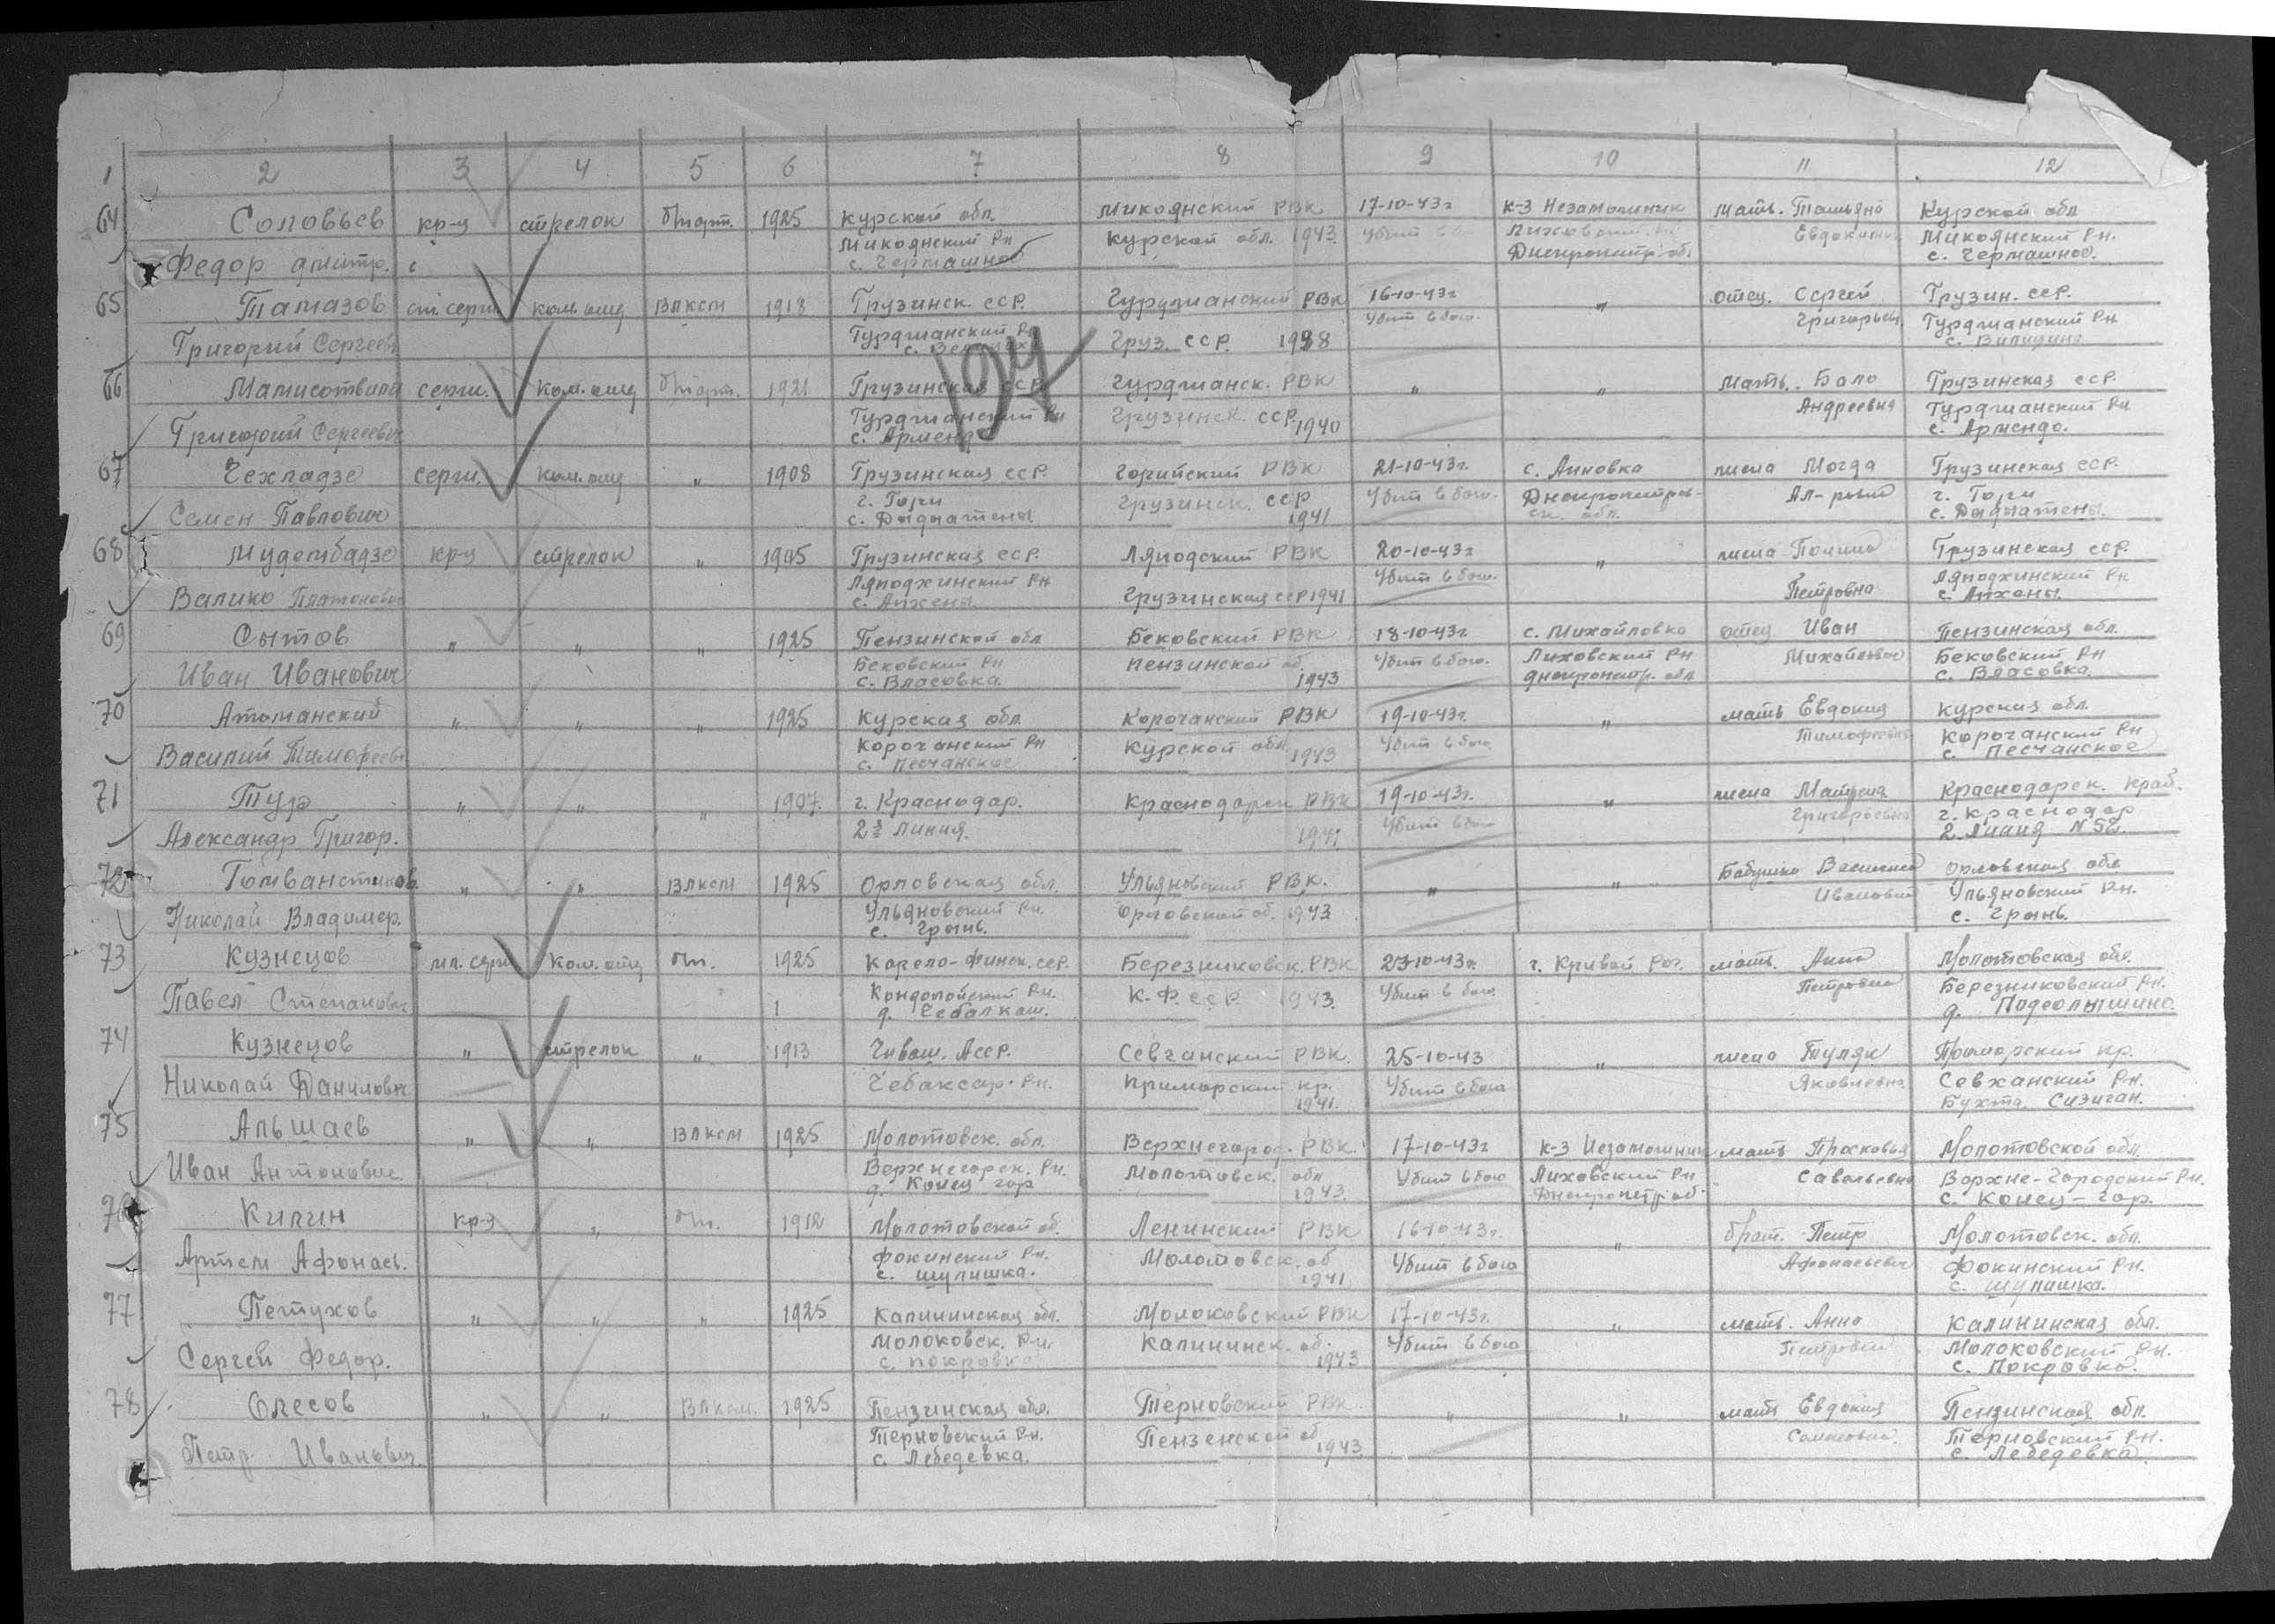 1 2 3 4 5 6 7 8 9 10 11 12
64 Соловьев кр-ц стрелок б/парт. 1925 Курской обл. Микоянский РВК 17-10-43г к-з Незаможник мать. Татьяна Курской обл
Федор Дмитр. Микоянский Рн Курской обл. 1943 Убит Лиховский Евдокимов Микоянский Рн.
с. Чермашное Днепропетр. об. с. Чермашное.
65 Тамазов ст. серж ком. отд ВЛКСМ 1918 Грузинск. ССР. Гурджианский РВК 16-10-43г " отец. Сергей Грузин. ССР.
Григорий Сергеев Гурджианский Рн Груз. ССР. 1938 Убит в бою. Григорьев. Гурджианский Рн
197
66 Мамисотвили серж. Ком. отд б/парт. 1921 Грузинская ССР Гурджианск. РВК " " Мать. Бало Грузинская ССР.
Григорий Сергеевич Гурджианский Рн Грузинск. ССР. 1940 Андреевна Гурджианский Рн
с. Арменд с. Армендо.
67 Чехладзе серж. ком. отд " 1908 Грузинская ССР. Горийский РВК 21-10-43г. с. Анновка жена Магда Грузинская ССР.
Семен Павлович г. Гори Грузинск. ССР 1941 Убит в бою. Днепропетров- г. Гори
с. Дыдиатены ск. обл. с. Дыдиатены.
68 Мудембадзе кр-ц стрелок " 1905 Грузинская ССР. Ляподский РВК 20-10-43г " жена Полина Грузинская ССР.
Валико Платонович Ляподхинский Рн Грузинская ССР 1941 Убит в бою. Петровна Ляподхинский Рн
с. Анхены. с. Анхены.
69 Сытов " " " 1925 Пензинской обл Бековский РВК 18-10-43г. с. Михайловка отец Иван Пензинская обл.
Иван Иванович Бековский Рн Пензинской об. 1943 Убит в бою. Лиховский Рн Михайлович Бековский Рн
с. Власовка. Днепропетр. обл с. Власовка.
70 Атаманский " " " 1925 Курская обл. Корочанский РВК 19-10-43г. " мать Евдокия Курская обл.
Василий Тимофеев Корочанский Рн Курской обл. 1943 Убит в бою Тимофеевна Корочанский Рн
с. Песчанское с. Песчанское
71 Тур " " " 1907. г. Краснодар. Краснодарск РВК 19-10-43г. " жена Матрена Краснодарск. край.
Александр Григор. 2я Линия. 1941 Убит в бою Григорьевна г. Краснодар
2 Линия N 52.
72 " " ВЛКСМ 1925 Орловская обл. Ульяновский РВК. " " Бабушка Василиса Орловская обл
Николай Владимер. Ульяновский Рн. Орловской об. 1943 Ивановна Ульяновский Рн.
с. Грынь. с. Грынь.
73 Кузнецов мл. серж Ком. отд б/п. 1925 Карело-Финск. ССР. Березниковск. РВК 23-10-43г. г. Кривой Рог. мать. Анна Молотовская обл.
Павел Степанович Кондопойский Рн. К.Ф. ССР 1943. Убит в бою. Петровна Березниковский Рн.
д. Чебалкаш. д.
74 Кузнецов " стрелок " 1913 Чуваш. АССР. Севчанский РВК. 25-10-43 " жена Туляк Приморский кр.
Николай Данилович Чебаксар. Рн. Приморский кр. 1941. Убит в бою Яковлевна. Севханский Рн.
Бухта. Сизиган.
75 Альшаев " " ВЛКСМ 1925 Молотовск. обл. Верхнегород. РВК. 17-10-43г к-з Незаможник мать Прасковья Молотовской обл.
Иван Антонович Верхнегорск. Рн. Молотовск. обл 1943. Убит в бою Лиховский Рн Савельевна Верхне-Городский Рн.
д. Конец гор Днепропетр. об. с. Конец-гор.
76 Килин кр-ц " б/п. 1912 Молотовской об. Ленинский РВК 16-10-43г. " брат. Петр Молотовск. обл.
Артем Афонаев. Фокинский Рн. Молотовск. об 1941 Убит в бою Афонасьевич Фокинский Рн.
с. Шулишка. с. Шулашка.
77 Петухов " " " 1925 Калининская обл. Молоковский РВК 17-10-43г. " мать. Анна Калининская обл.
Сергей Федор. Молоковск. Р-н. Калининск. об. 1943 Убит в бою Петровна Молоковский Рн.
с. Покровка с. Покровка.
78 Олесов " " ВЛКСМ. 1925 Пензинская обл. Терновский РВК. " " мать Евдокия Пензинская обл.
Петр Иванович. Терновский Рн. Пензенской об 1943 Терновский Рн.
с. Лебедевка. с. Лебедевка.